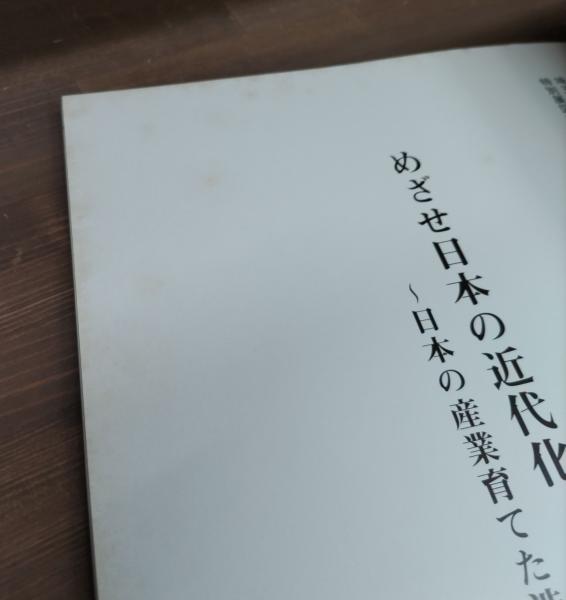 めざせ日本の近代化
～日本の産業育てた